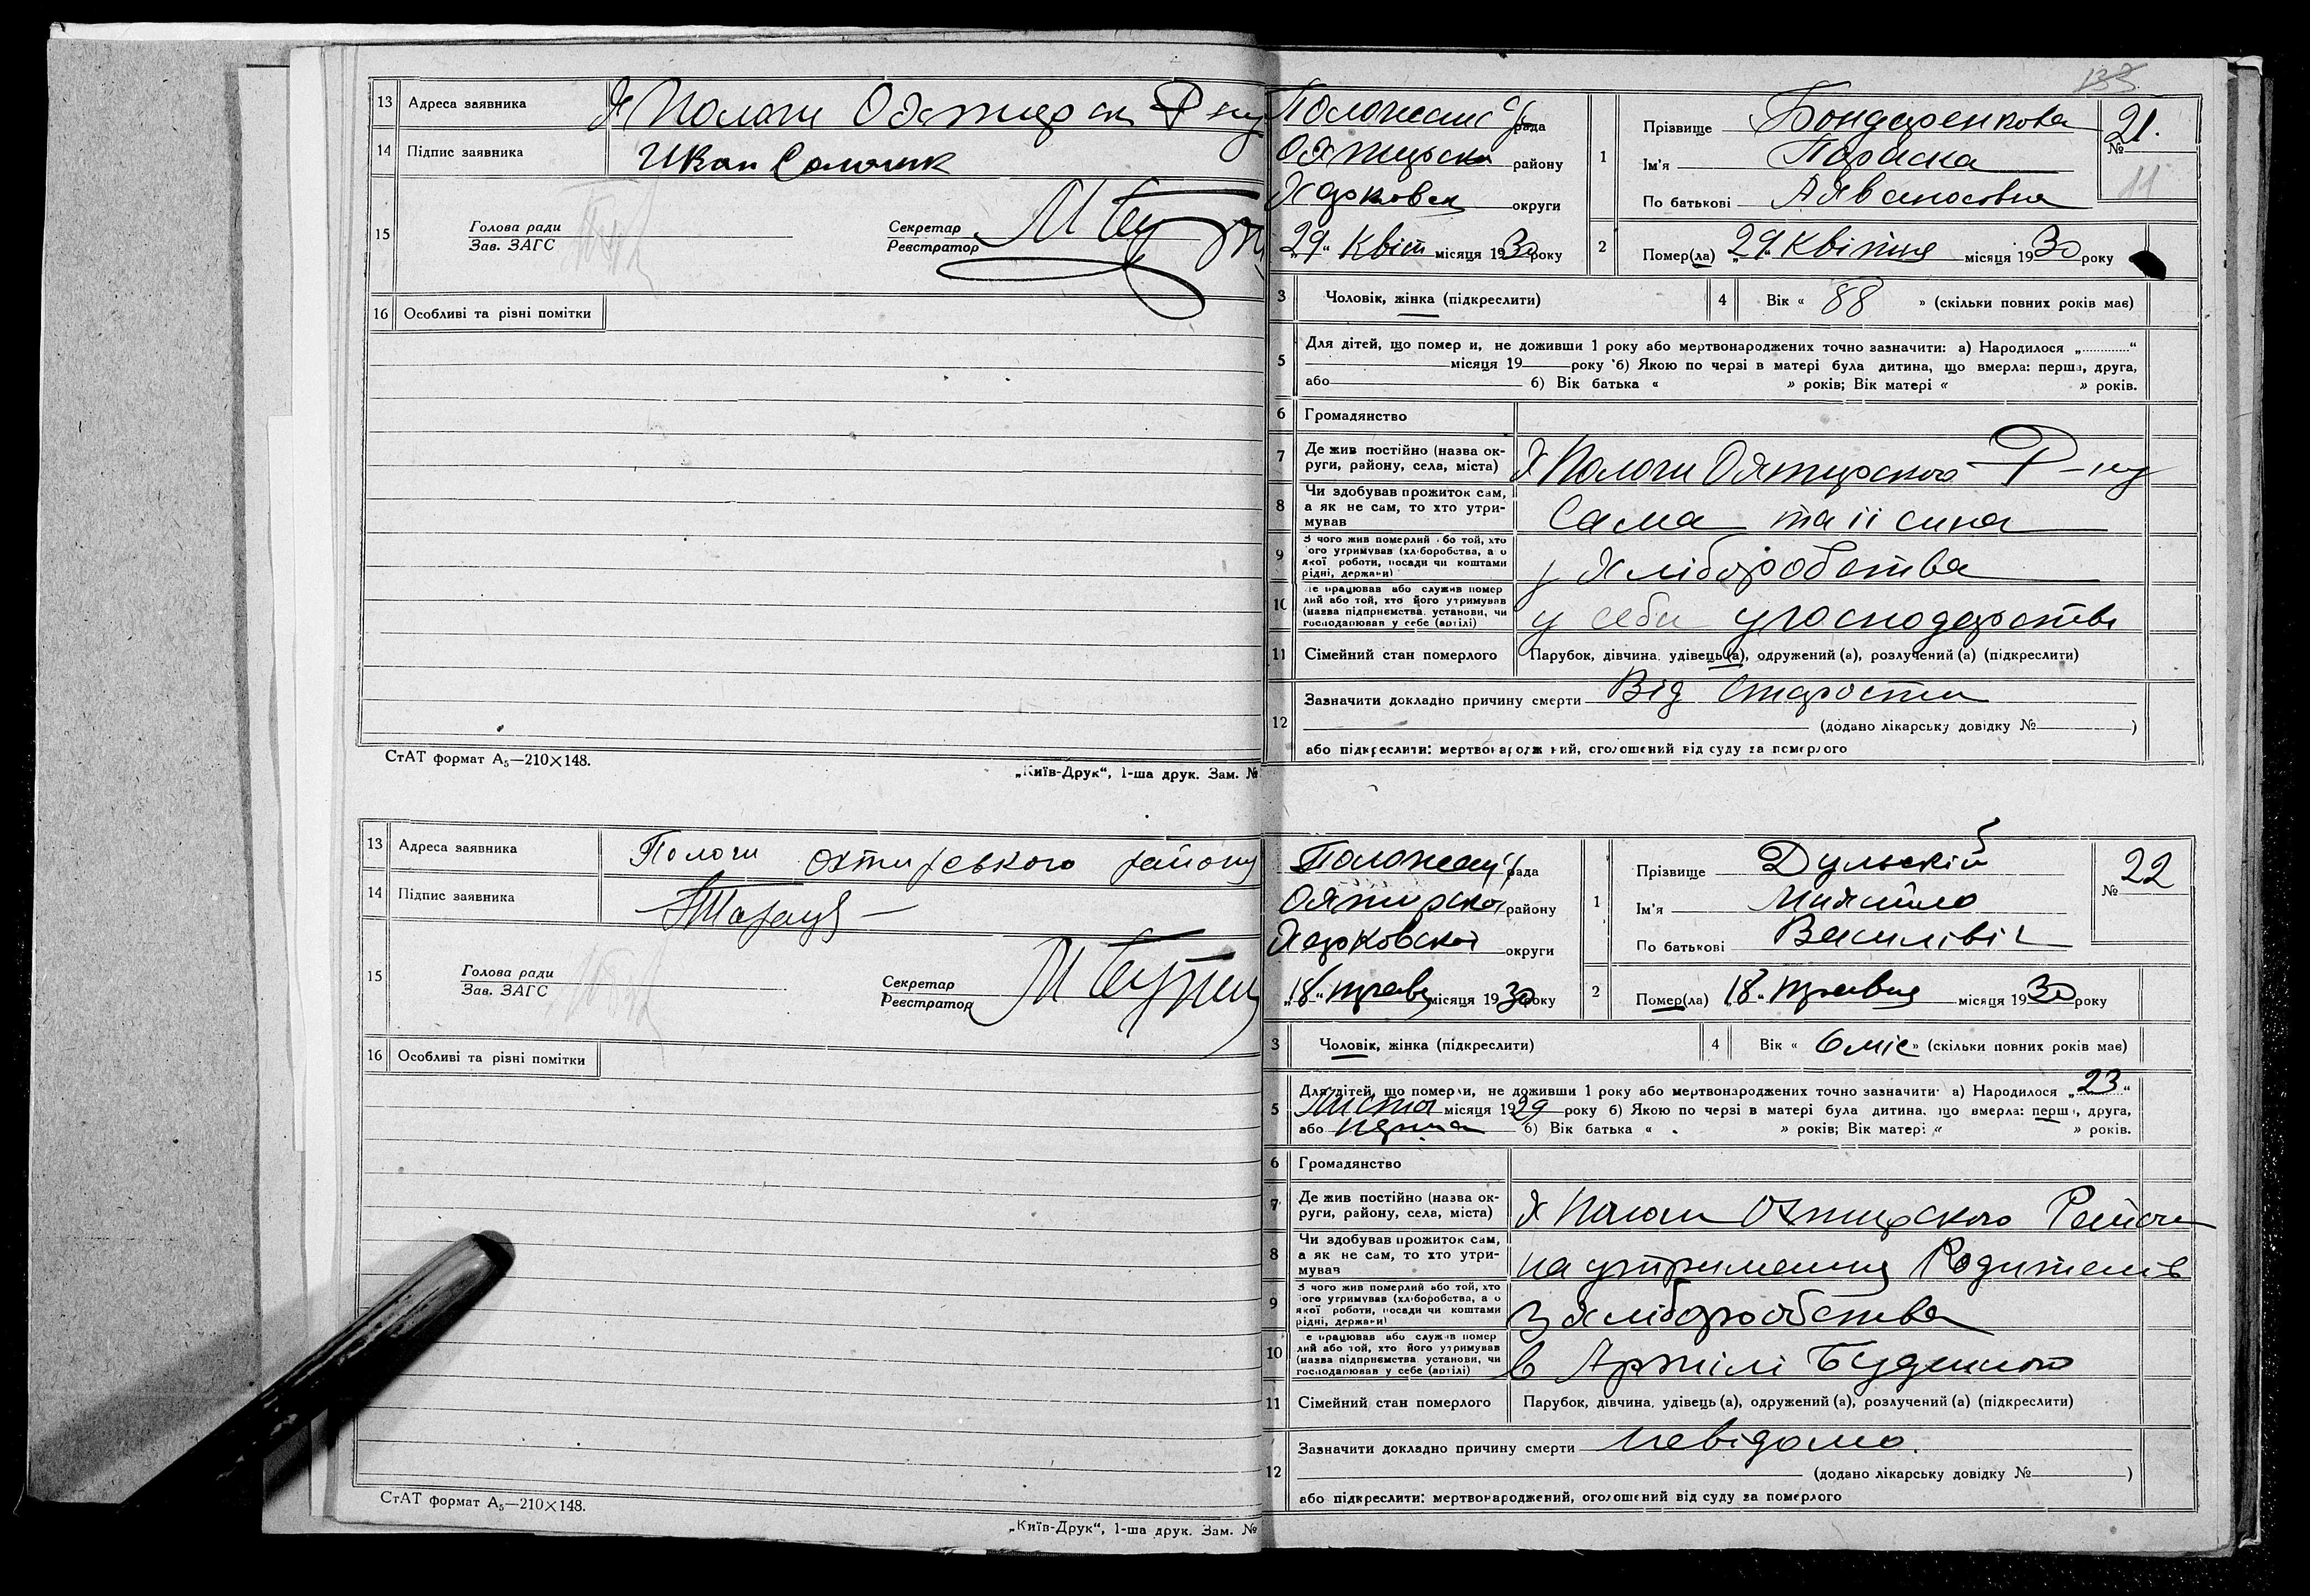 13 Адреса заявника Х Пологи Охтирск Р-ну
14 Підпис заявника Иван
15 Голова ради
Зав. ЗАГС
Секретар
Реєстратор
16 Особливі та різні помітки
СтАТ формат А₅—210×148.
„Київ-Друк“, 1-ша друк. Зам. №
13 Адреса заявника Пологи охтирського району
14 Підпис заявника
15 Голова ради
Зав. ЗАГС
Секретар
Реєстратор
16 Особливі та різні помітки
СтАТ формат А₅—210×148.
„Київ-Друк“, 1-ша друк. Зам. №
133
с/рада
району
Харковск округи
„29“ Квіт місяця 1930 року
1 Прізвище Бондаренкова
Ім'я Параска
По батькові
№ 21.
11
2 Помер(ла) „29“ Квітня місяця 1930 року
3 Чоловік, жінка (підкреслити)
4 Вік « 88 » (скільки повних років має)
5 Для дітей, що помер и, не доживши 1 року або мертвонароджених точно зазначити: а) Народилося „............“
місяця 19 року б) Якою по черзі в матері була дитина, що вмерла: перша, друга,
або б) Вік батька « » років; Вік матері « » років.
6 Громадянство
7 Де жив постійно (назва ок-
руги, району, села, міста) Х Пологи Охтирского Р-ну
8 Чи здобував прожиток сам,
а як не сам, то хто утри-
мував Сама та її сина
9 З чого жив померлий або той, хто
його утримував (хліборобства, а о
якої роботи, посади чи коштами
рідні, держави) з хліборобства
10 Де працював або служив помер
лий або той, хто його утримував
(назва підприємства, установи, чи
господарював у себе (артілі) у себе у господарстві
11 Сімейний стан померлого Парубок, дівчина, удівець(а), одружений(а), розлучений(а) (підкреслити)
12 Зазначити докладно причину смерти Від Старости
(додано лікарську довідку № )
або підкреслити: мертвонароджений, оголошений від суду за померлого
с/рада
району
Харковскої округи
„18“ травня місяця 1930 року
1 Прізвище Дульскій
Ім'я Михайло
По батькові Василівіч
№ 22
2 Помер(ла) „18“ травня місяця 1930 року
3 Чоловік, жінка (підкреслити)
4 Вік « 6 міс » (скільки повних років має)
5 Для дітей, що померли, не доживши 1 року або мертвонароджених точно зазначити: а) Народилося „23“
Листоп місяця 1929 року б) Якою по черзі в матері була дитина, що вмерла: перша, друга,
або перша б) Вік батька « » років; Вік матері « » років.
6 Громадянство
7 Де жив постійно (назва ок-
руги, району, села, міста) Х Пологи Охтирского Району
8 Чи здобував прожиток сам,
а як не сам, то хто утри-
мував на утриманню Родителів
9 З чого жив померлий або той, хто
його утримував (хліборобства, а о
якої роботи, посади чи коштами
рідні, держави) з хліборобства
10 Де працював або служив помер
лий або той, хто його утримував
(назва підприємства, установи, чи
господарював у себе (артілі) в Артілі Будьоного
11 Сімейний стан померлого Парубок, дівчина, удівець(а), одружений(а), розлучений(а) (підкреслити)
12 Зазначити докладно причину смерти Невідомо.
(додано лікарську довідку № )
або підкреслити: мертвонароджений, оголошений від суду за померлого